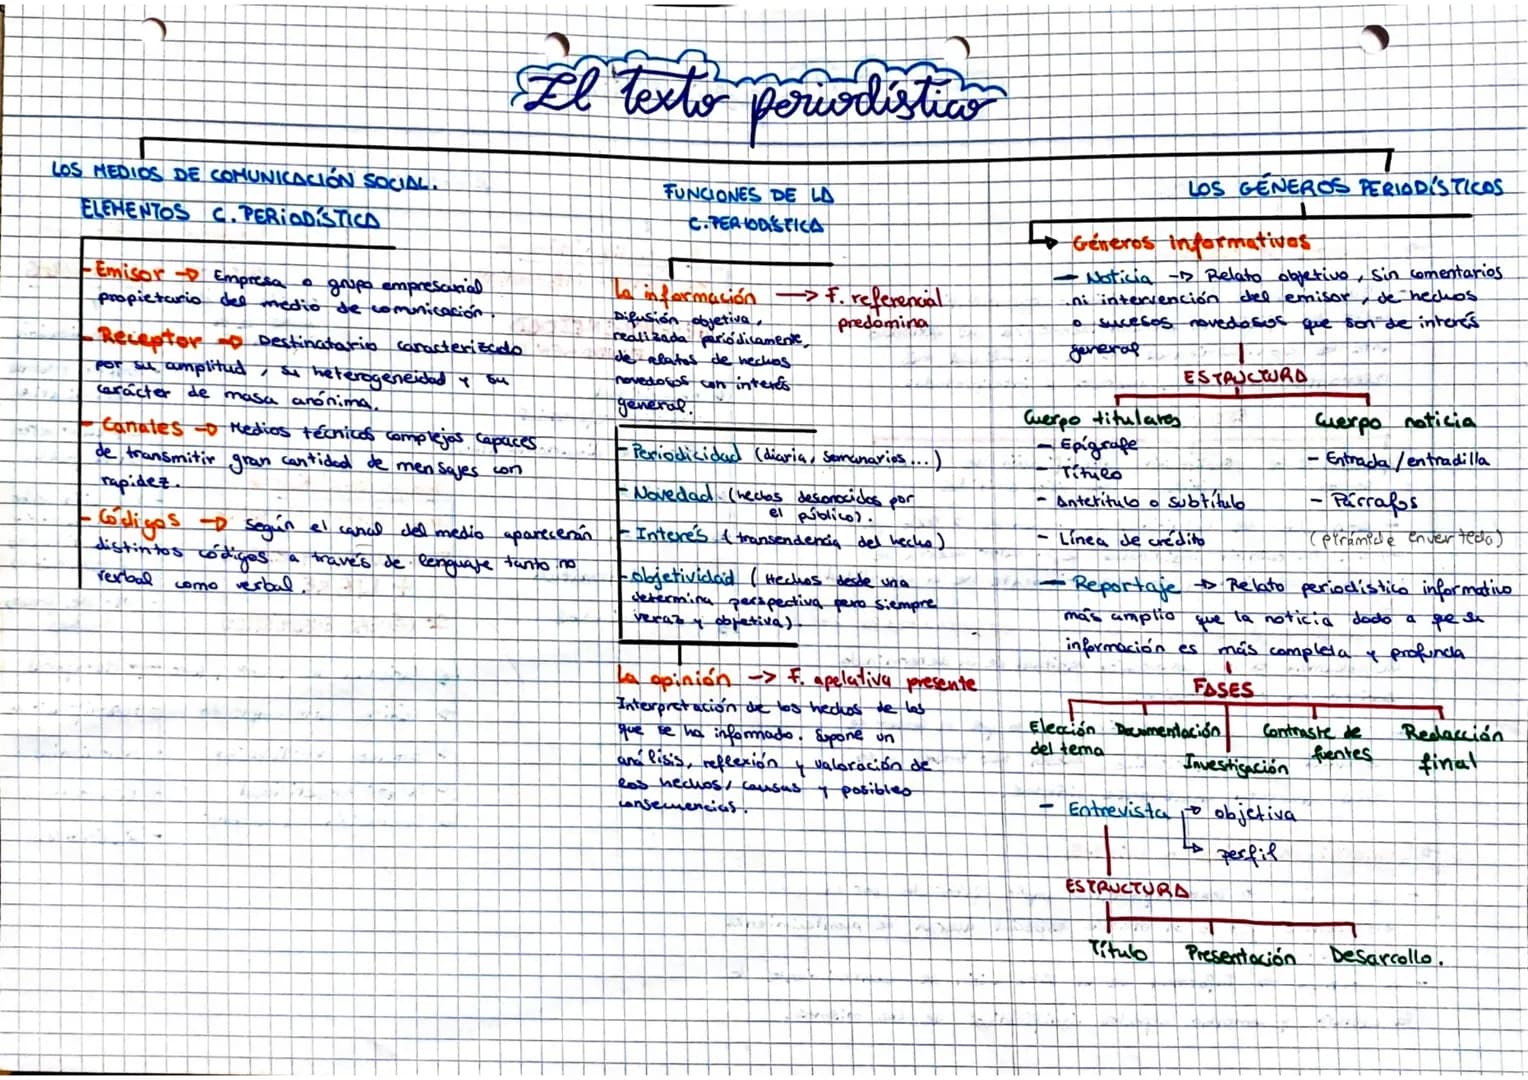 El texto periodístico
LOS MEDIOS DE COMUNICACIÓN SOCIAL.
ELEMENTOS C. PERIODÍSTICA
- Emisor → Empresa o grupo empresarial
propietario del medio de comunicación.
- Receptor → Destinatario caracterizado
por su amplitud, su heterogeneidad y su
carácter de masa anónima.
- Canales → Medios técnicos complejos capaces
de transmitir gran cantidad de mensajes con
rapidez.
- Códigos → según el canal del medio aparecerán
distintos códigos a través de lenguaje tanto no
verbal como verbal.
FUNCIONES DE LA
C. PERIODÍSTICA
La información → F. referencial
predomina
Difusión objetiva,
realizada periódicamente,
de relatos de hechos
novedosos con interés
general.
- Periodicidad (diaria, semanarios...)
- Novedad (hechos desconocidos por
el público).
- Interés (transendencia del hecho)
- objetividad (Hechos desde una
determina perspectiva pero siempre
veraz y objetiva)
La opinión → F. apelativa presente
Interpretación de los hechos de los
que se ha informado. Supone un
análisis, reflexión y valoración de
los hechos, causas y posibles
consecuencias.
LOS GÉNEROS PERIODÍSTICOS
→ Géneros informativos
- Noticia → Relato objetivo, sin comentarios
ni intervención del emisor, de hechos
o sucesos novedosos que son de interés
general
ESTRUCTURA
Cuerpo titulares
- Epígrafe
- Título
- Antetítulo o subtítulo
- Línea de crédito
Cuerpo noticia
- Entrada/entradilla
- Párrafos
(pirámide enverteda)
- Reportaje → Relato periodístico informativo
más amplio que la noticia dado a que su
información es más completa y profunda
FASES
Elección
del tema
Documentación
Investigación
Contraste de
fuentes
Redacción
final
- Entrevista → objetiva
→ perfil
ESTRUCTURA
Título Presentación Desarrollo.